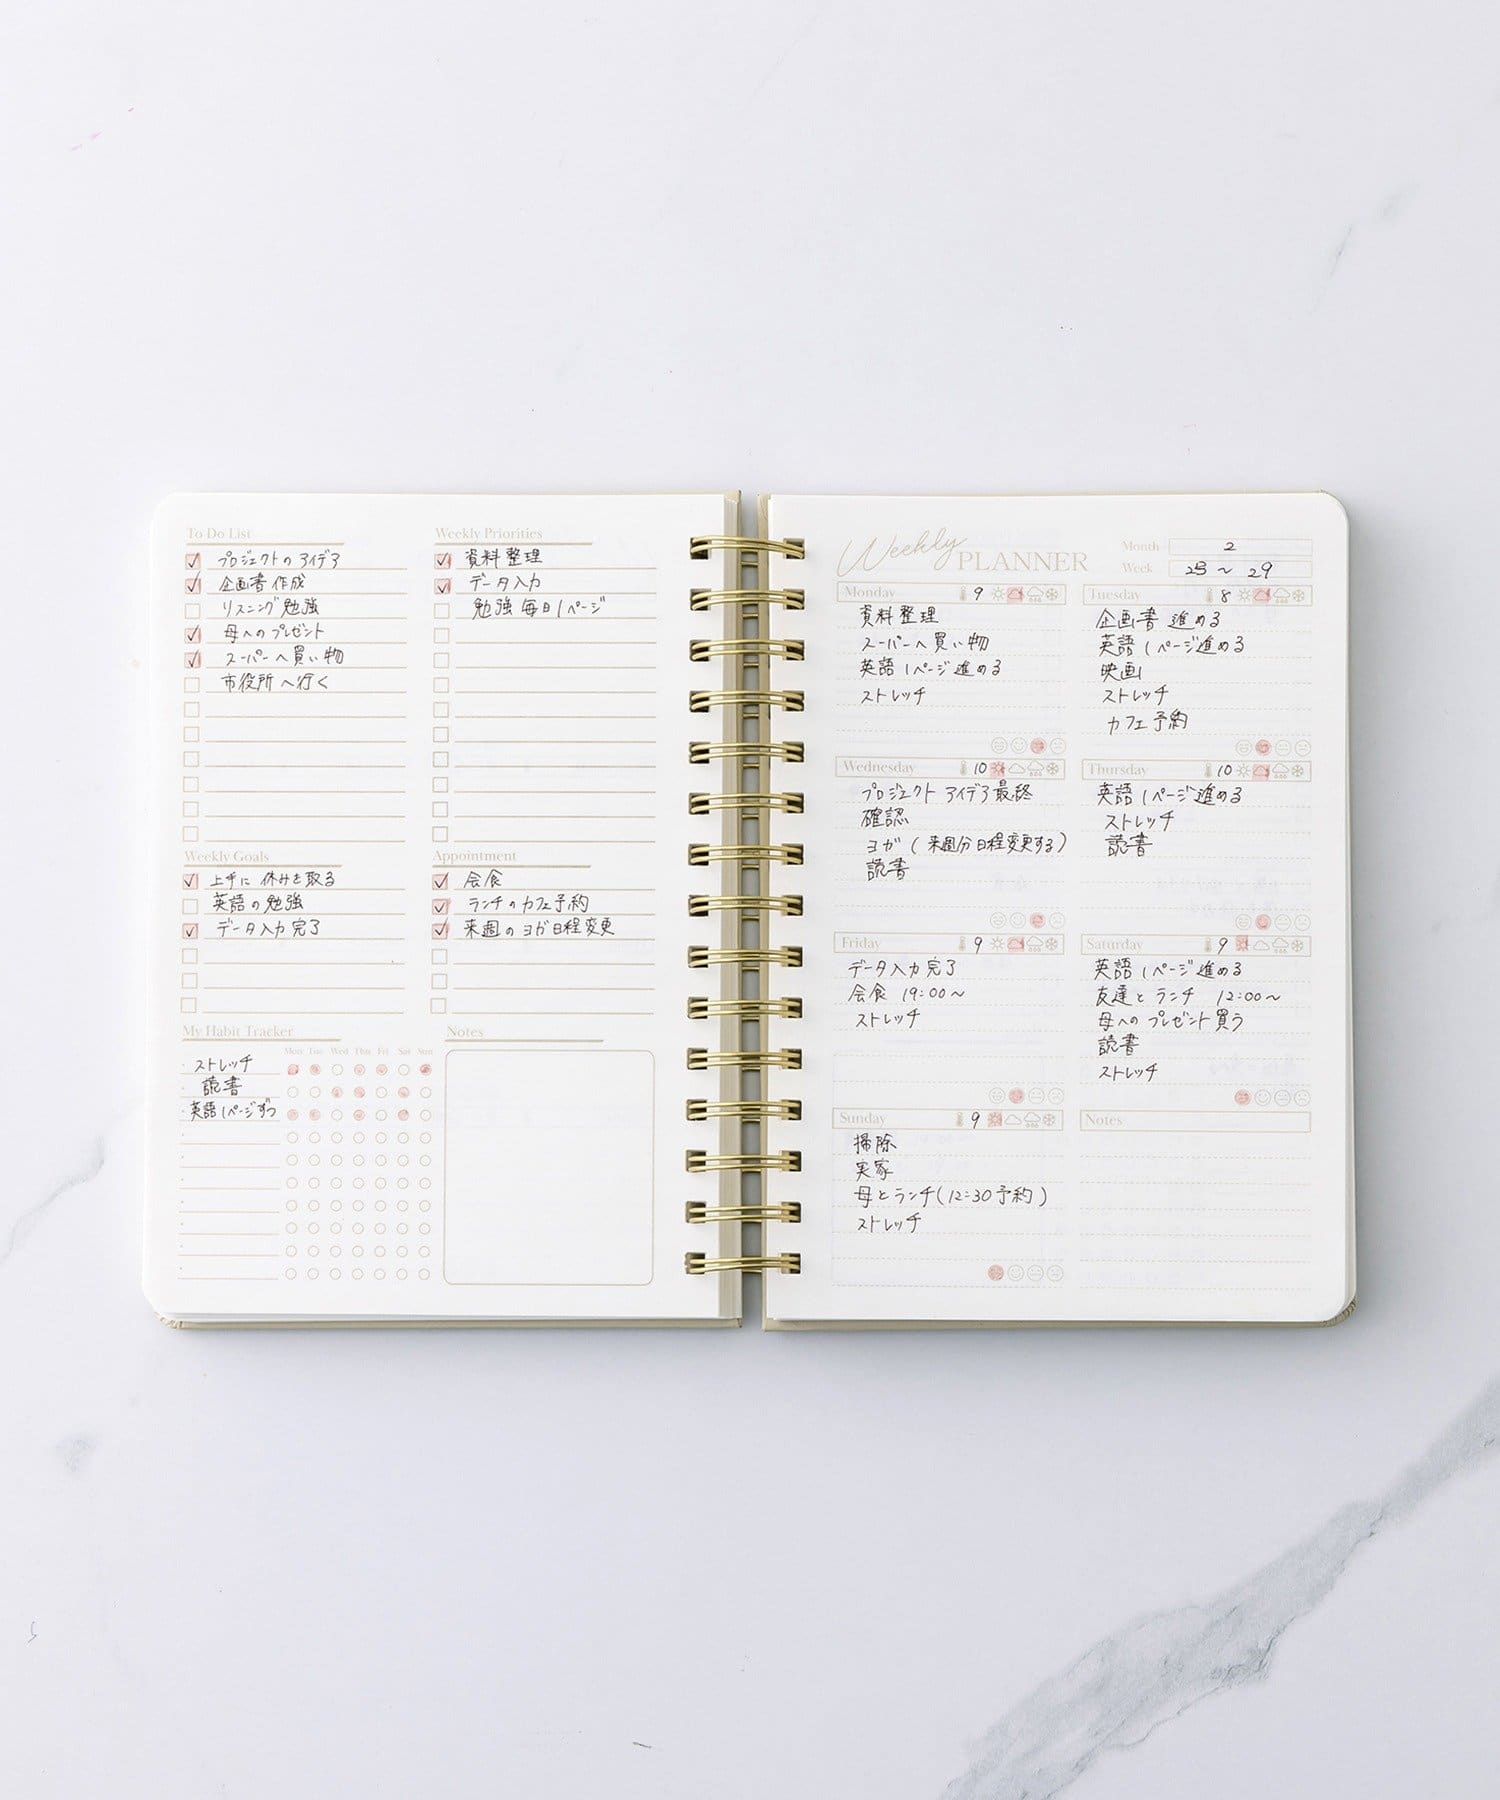 To Do List
プロジェクトのアイデア
企画書作成
リスニング勉強
母へのプレゼント
スーパーへ買い物
市役所へ行く
Weekly Priorities
資料整理
データ入力
勉強毎日1ページ
Weekly Goals
上手に休みを取る
英語の勉強
データ入力完了
Appointment
会食
ランチのカフェ予約
来週のヨガ日程変更
My Habit Tracker
Mon Tue Wed Thu Fri Sat Sun
ストレッチ
読書
英語1ページずつ
Notes
Weekly PLANNER
Month 2
Week 23~29
Monday 9
資料整理
スーパーへ買い物
英語1ページ進める
ストレッチ
Tuesday 8
企画書 進める
英語1ページ進める
映画
ストレッチ
カフェ予約
Wednesday 10
プロジェクト アイデア最終
確認
ヨガ(来週分日程変更する)
読書
Thursday 10
英語1ページ進める
ストレッチ
読書
Friday 9
データ入力完了
会食 19:00~
ストレッチ
Saturday 9
英語1ページ進める
友達とランチ 12:00~
母へのプレゼント買う
読書
ストレッチ
Sunday 9
掃除
実家
母とランチ(12:30予約)
ストレッチ
Notes